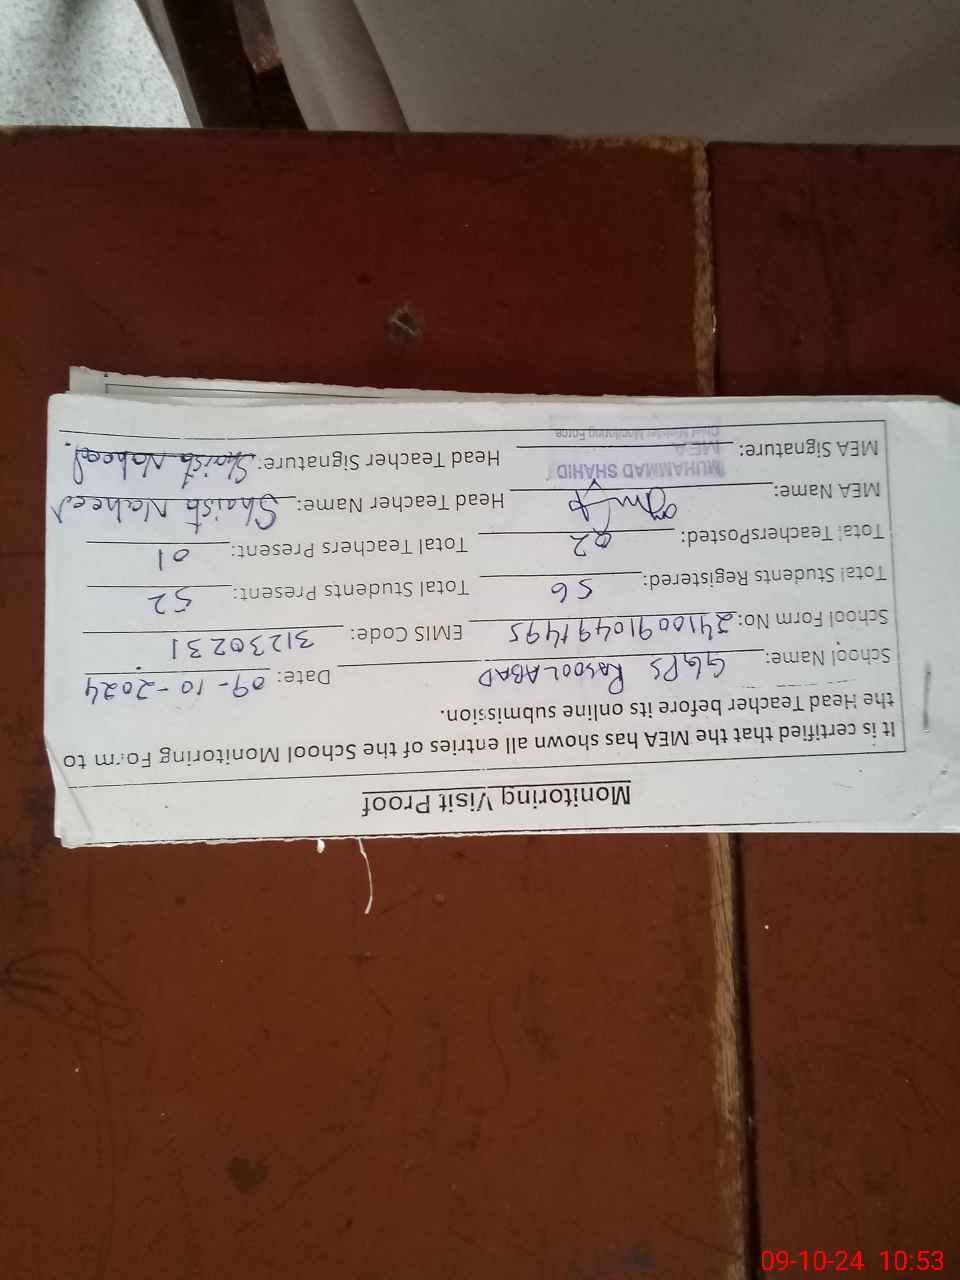 Monitoring Visit Proof
It is certified that the MEA has shown all entries of the School Monitoring Form to
the Head Teacher before its online submission.
School Name: GGPS RASOOLABAD Date: 09-10-2024
School Form No: EMIS Code: 31230231
Total Students Registered: 56 Total Students Present: 52
Total Teachers Posted: 02 Total Teachers Present: 01
MEA Name: Head Teacher Name: Shaista Naheed
MUHAMMAD SHAHID
MEA Signature: MEA Head Teacher Signature: Shaista Naheed
Chief Minister Monitoring Force
09-10-24 10:53